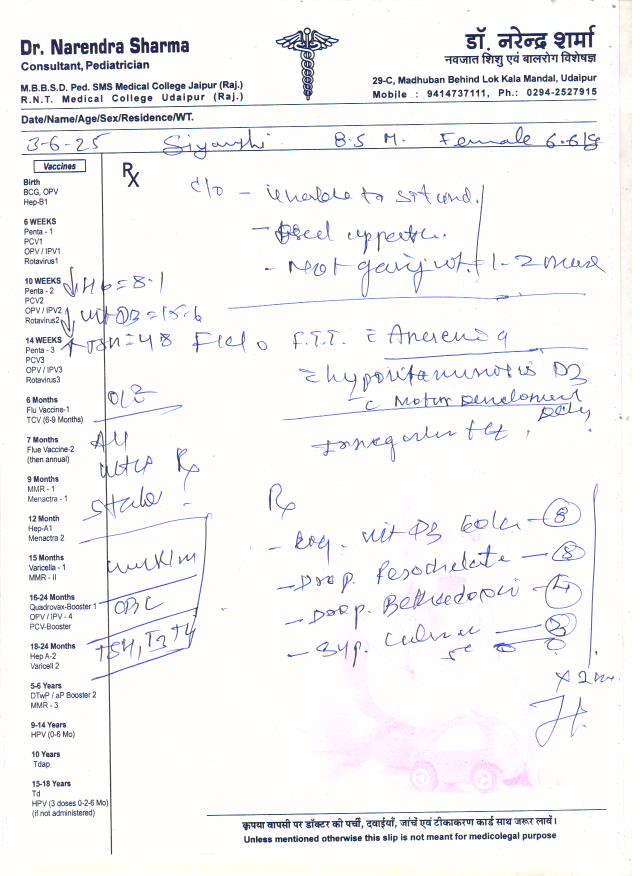 Dr. Narendra Sharma
Consultant, Pediatrician
M.B.B.S.D. Ped. SMS Medical College Jaipur (Raj.)
R.N.T. Medical College Udaipur (Raj.)
डॉ. नरेन्द्र शर्मा
नवजात शिशु एवं बालरोग विशेषज्ञ
29-C, Madhuban Behind Lok Kala Mandal, Udaipur
Mobile : 9414737111, Ph.: 0294-2527915
Date/Name/Age/Sex/Residence/WT.
3-6-25 8.5 M. Female 6.6
Vaccines
Birth
BCG, OPV
Hep-B1
6 WEEKS
Penta - 1
PCV1
OPV / IPV1
Rotavirus1
10 WEEKS
Penta - 2
PCV2
OPV / IPV2
Rotavirus2
14 WEEKS
Penta - 3
PCV3
OPV / IPV3
Rotavirus3
6 Months
Flu Vaccine-1
TCV (6-9 Months)
7 Months
Flue Vaccine-2
(then annual)
9 Months
MMR - 1
Menactra - 1
12 Month
Hep-A1
Menactra 2
15 Months
Varicella - 1
MMR - II
16-24 Months
Quadrovax-Booster 1
OPV / IPV - 4
PCV-Booster
18-24 Months
Hep A-2
Varicell 2
5-6 Years
DTwP / aP Booster 2
MMR - 3
9-14 Years
HPV (0-6 Mo)
10 Years
Tdap
15-18 Years
Td
HPV (3 doses 0-2-6 Mo)
(if not administered)
Rx
c/o - unable to sit
- Not wt. 1-2
↓Hb = 8.1
↓ vit D3 = 15.6
↑ TSH = 48
F.T.T.
D3
c Motor Development
O/E
Rx
CBC
TSH, T3 T4
Rx
- vit D3 60k - 8
- Drop. - 8
- Drop. - 4
- Syp.
कृपया वापसी पर डॉक्टर की पर्ची, दवाईयाँ, जांचें एवं टीकाकरण कार्ड साथ जरूर लावें।
Unless mentioned otherwise this slip is not meant for medicolegal purpose